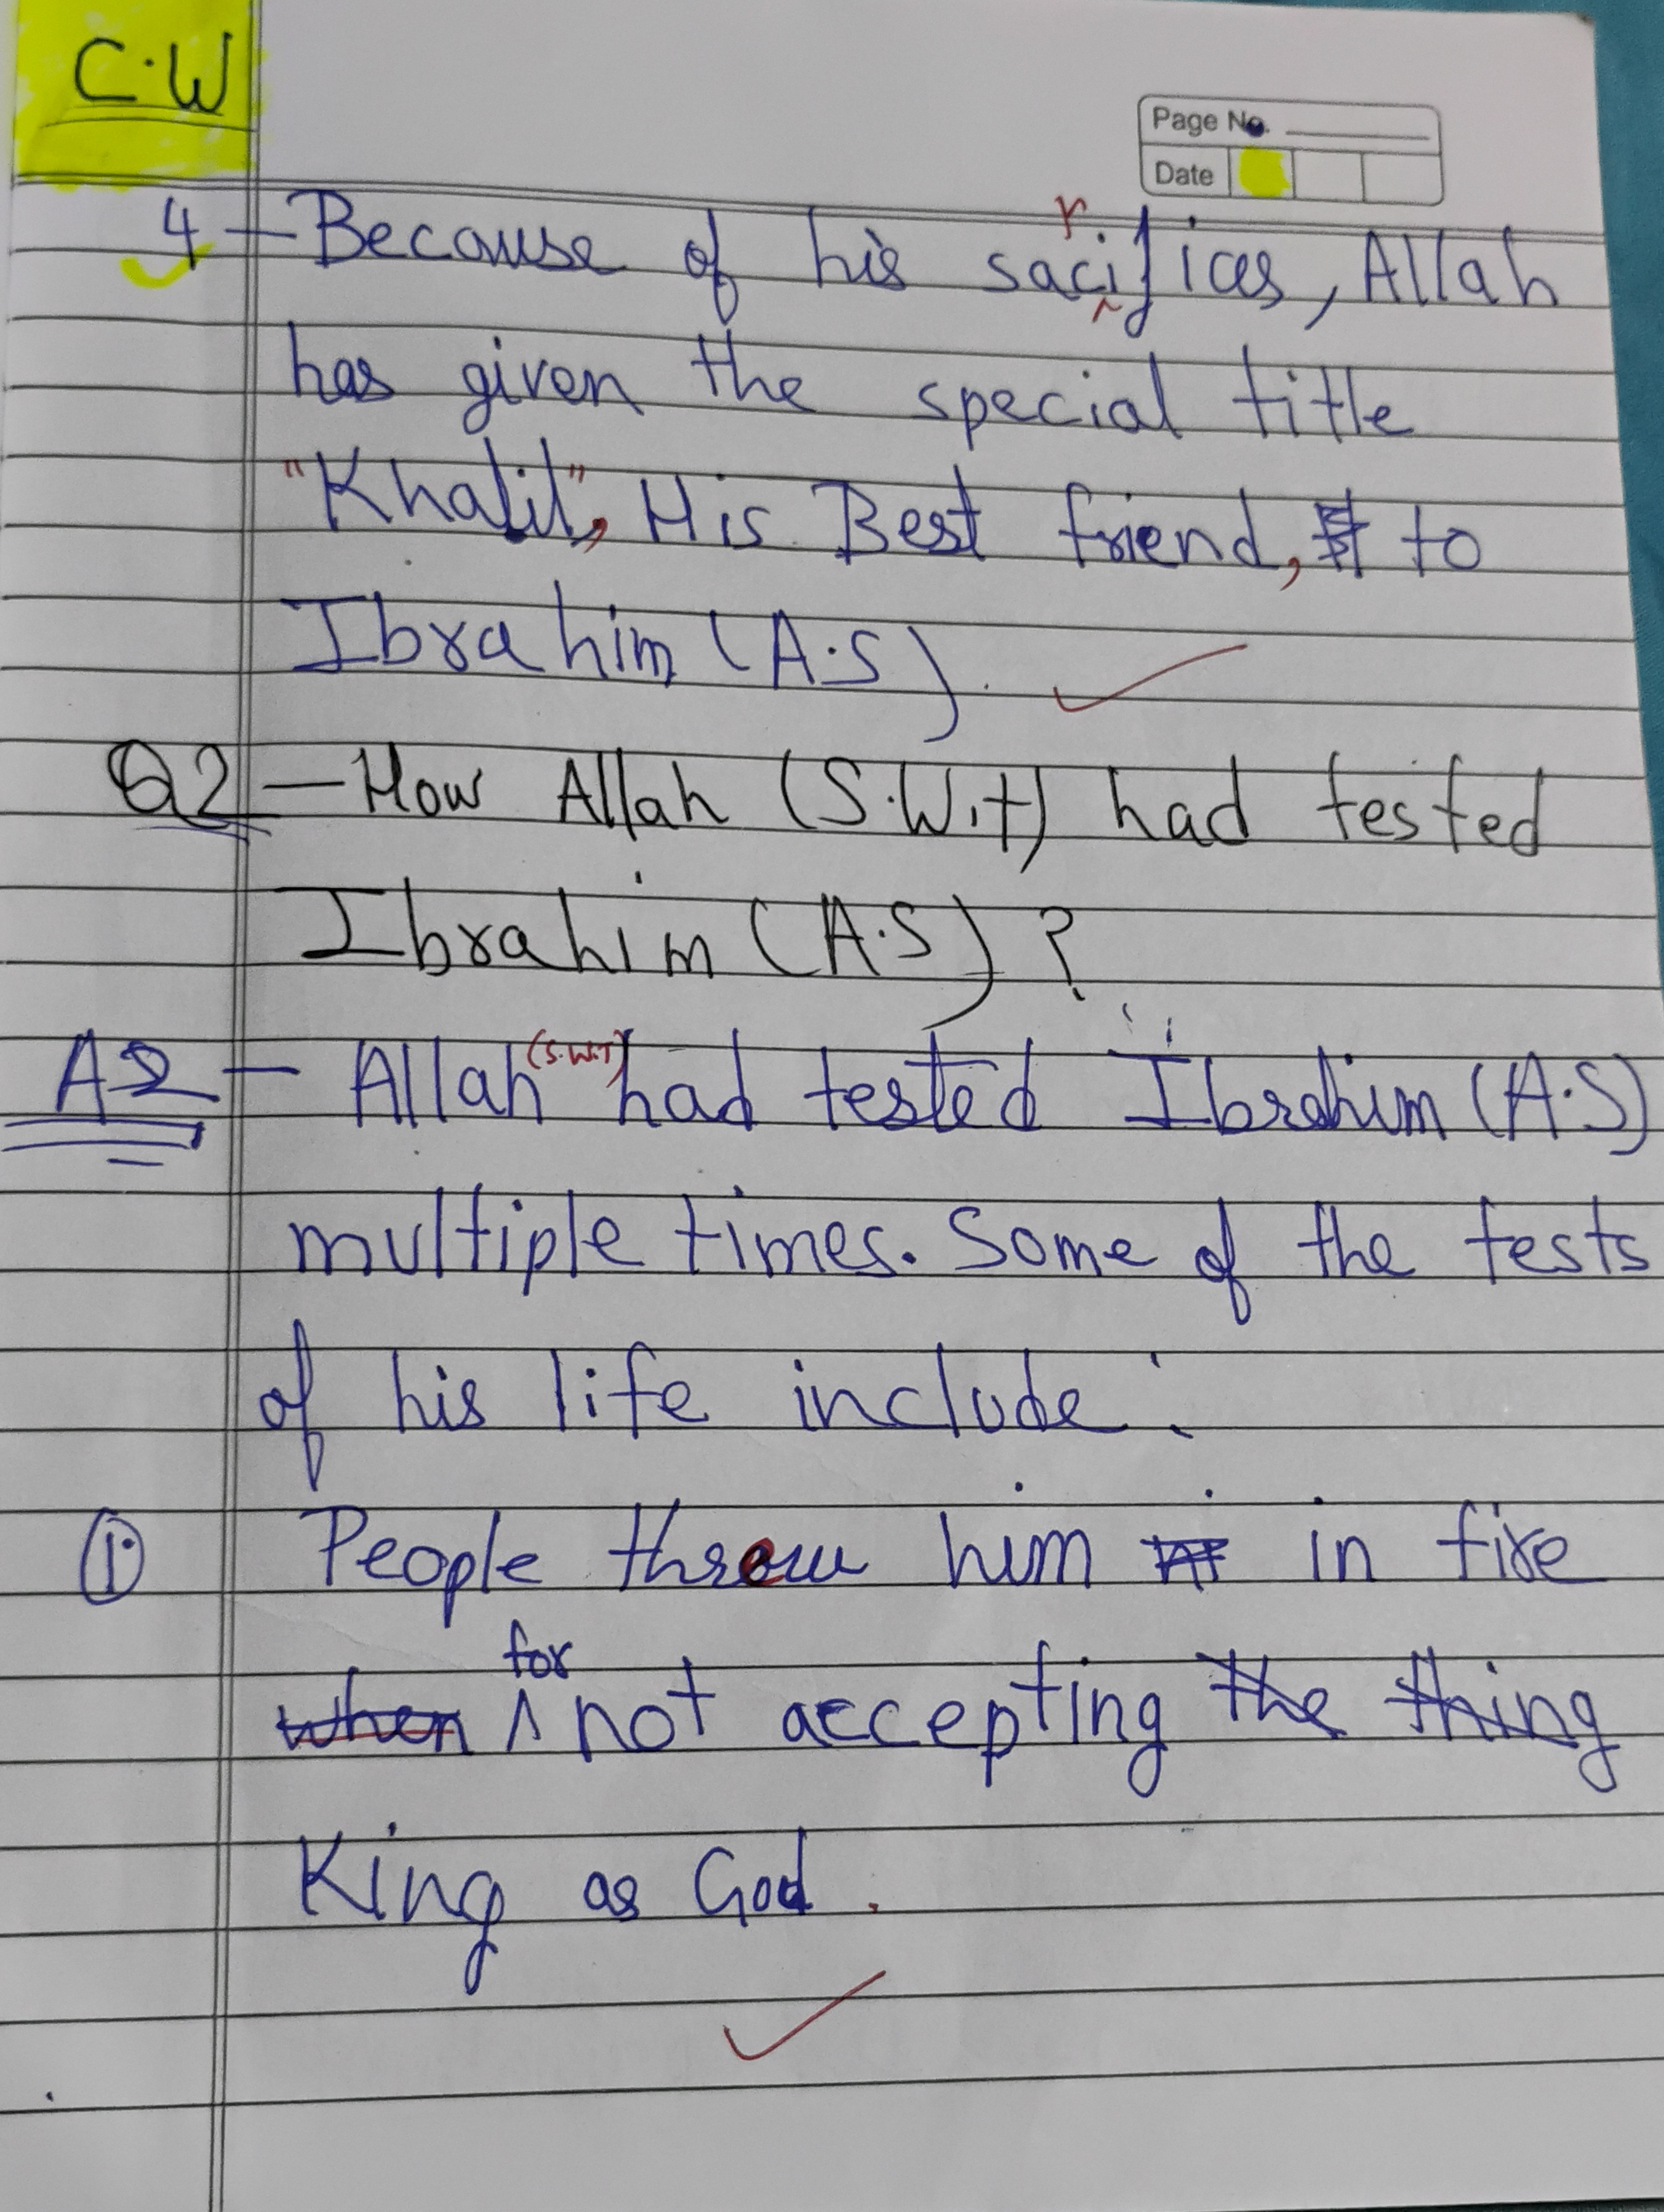 C.W
Page No.
Date
r
4 - Because of his sacifices, Allah
has given the special title
"Khalil", His Best friend, to
Ibrahim (A.S).
Q2 - How Allah (S.W.t) had tested
Ibrahim (A.S)?
A2 - Allah (S.W.T) had tested Ibrahim (A.S)
multiple times. Some of the tests
of his life include:
① People threw him in fire
for
when ^ not accepting the thing
King as God.